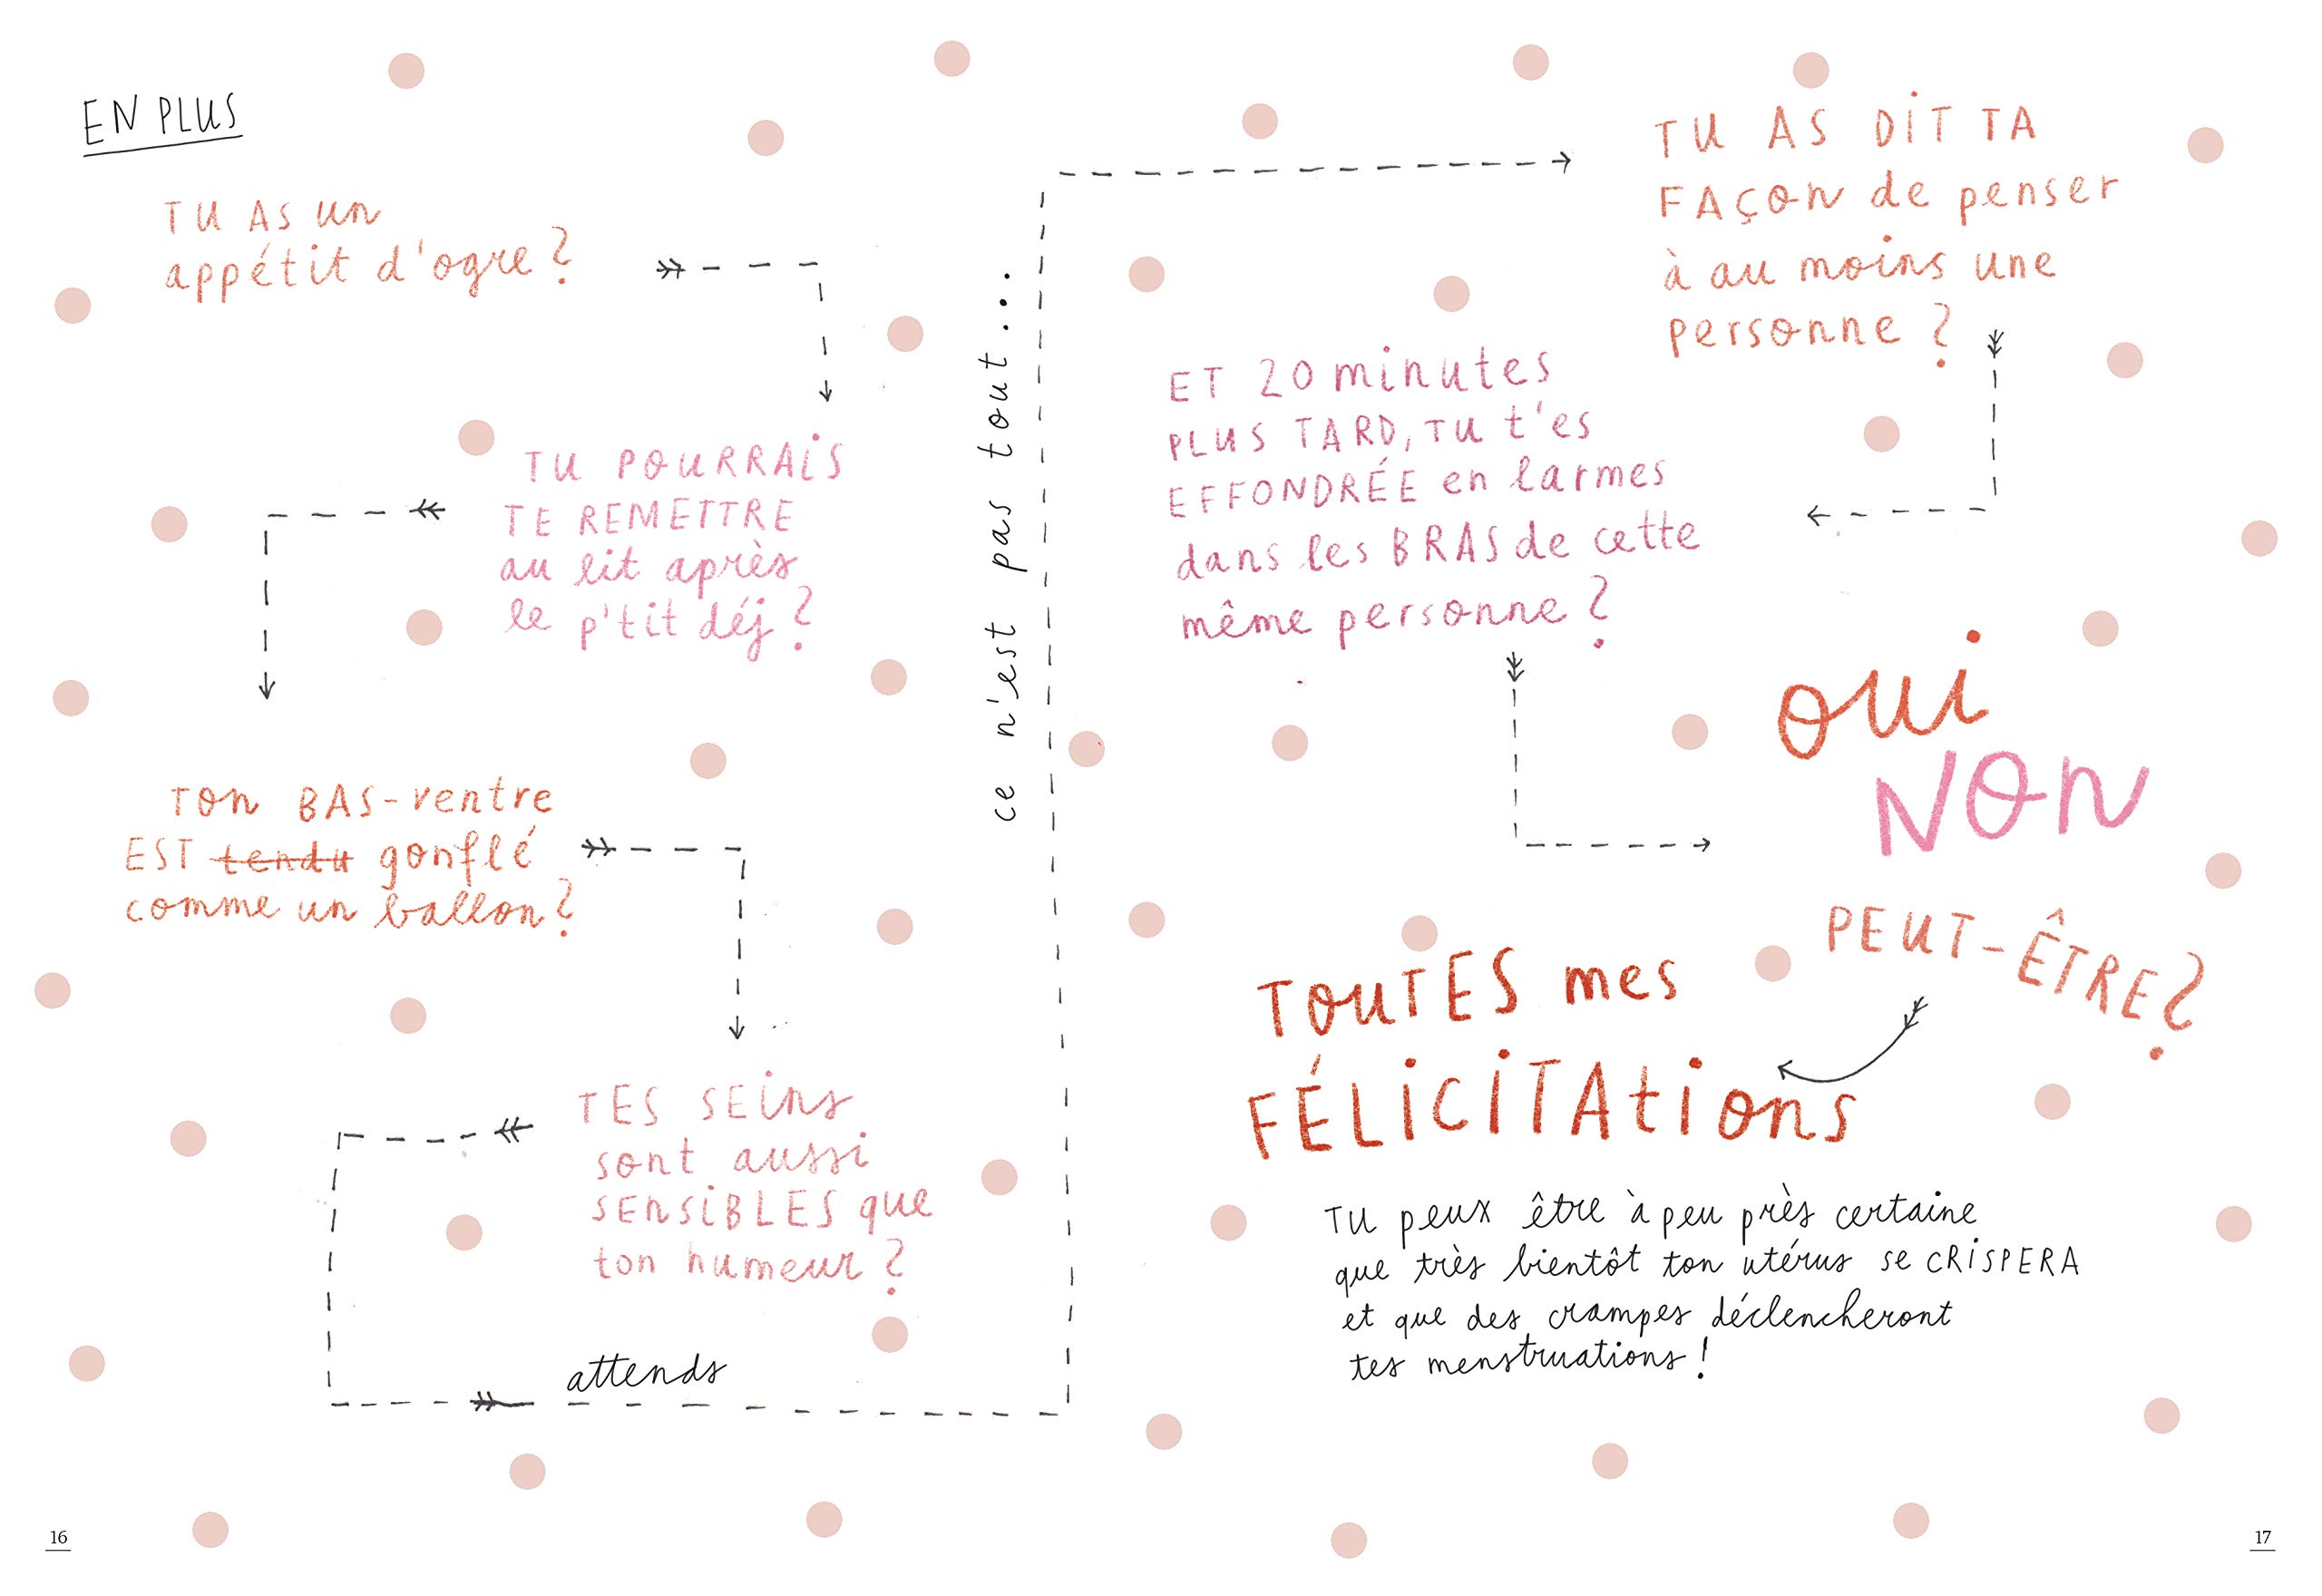 EN PLUS
TU AS un
appétit d'ogre ?
TU POURRAiS
TE REMETTRE
au lit après
le p'tit déj ?
Ton BAS-ventre
EST tendu gonflé
comme un ballon ?
TES SEins
sont aussi
SEnSiBLES que
ton humeur ?
attends
ce n'est pas tout...
TU AS DiT TA
FAÇon de penser
à au moins une
personne ?
ET 20 minutes
PLUS TARD, TU t'es
EFFONDRÉE en larmes
dans les BRAS de cette
même personne ?
oui
NON
PEUT-ÊTRE ?
TouTES mes
FÉLiCiTAtions
TU peux être à peu près certaine
que très bientôt ton utérus se CRiSPERA
et que des crampes déclencheront
tes menstruations !
16
17